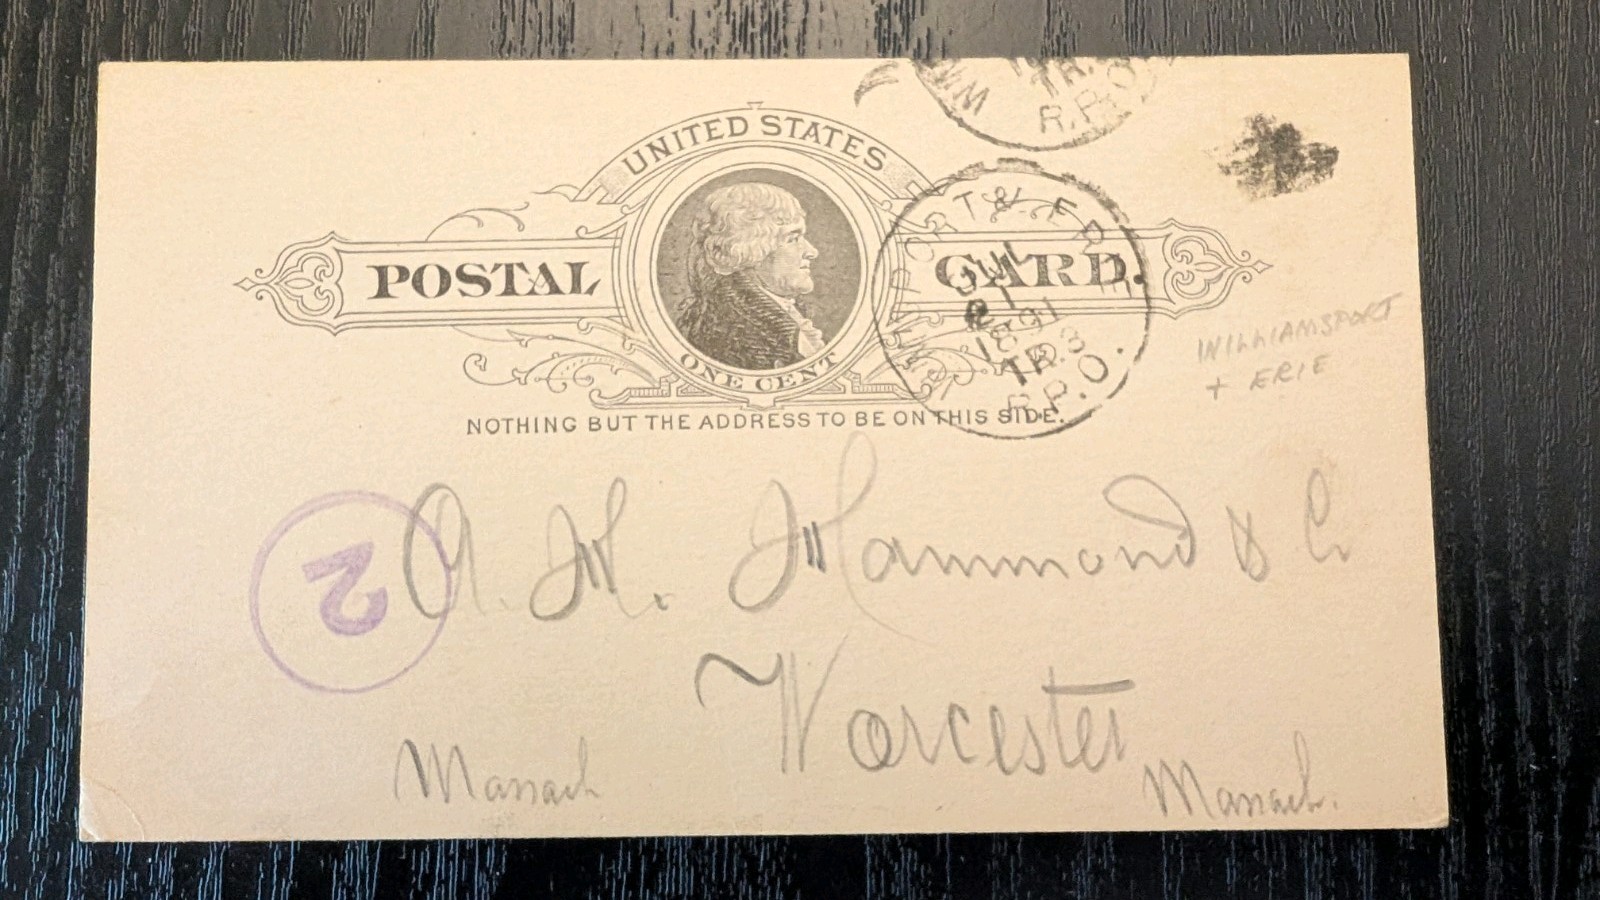 WM
TR.
R.P.O.
UNITED STATES
POSTAL CARD.
ONE CENT
WMSPORT & ERIE
JUL
21
1891
TR.3
R.P.O.
NOTHING BUT THE ADDRESS TO BE ON THIS SIDE.
WILLIAMSPORT
+ ERIE
2
A. H. Hammond & Co
Worcester
Massach
Massach.